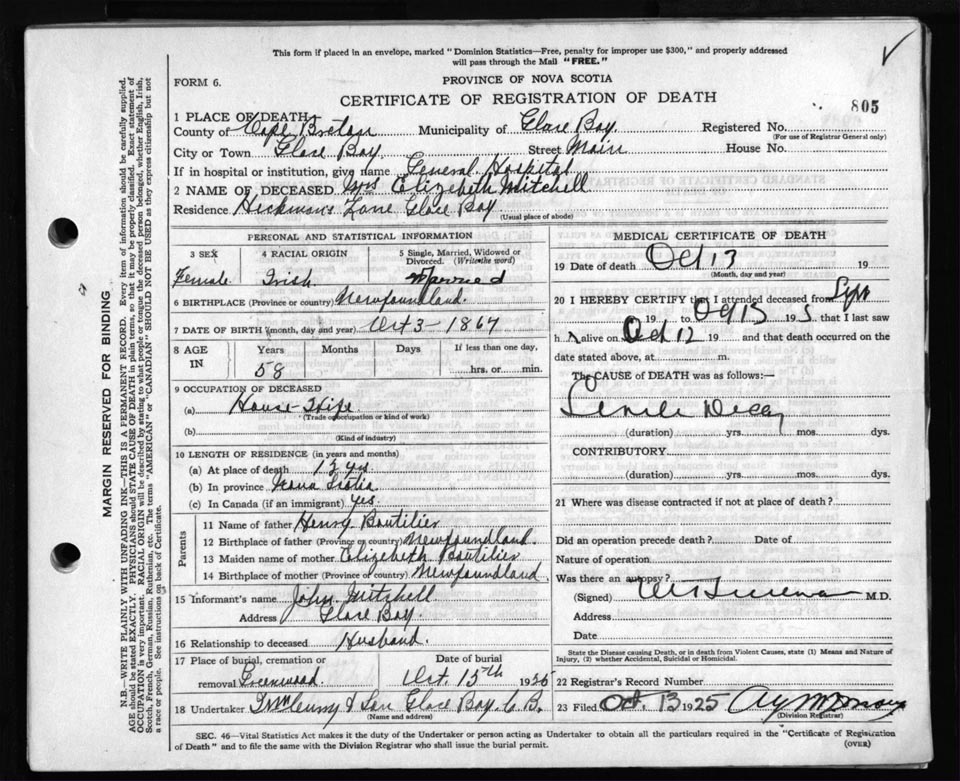 This form if placed in an envelope, marked "Dominion Statistics—Free, penalty for improper use $300," and properly addressed
will pass through the Mail "FREE."
FORM 6.
PROVINCE OF NOVA SCOTIA
CERTIFICATE OF REGISTRATION OF DEATH
805
1 PLACE OF DEATH
County of Cape Breton Municipality of Glace Bay. Registered No.
(For use of Registrar General only)
City or Town Glace Bay Street Main House No.
If in hospital or institution, give name General Hospital
2 NAME OF DECEASED Mrs Elizebeth Mitchell
Residence Hickman's Lane Glace Bay
(Usual place of abode)
MARGIN RESERVED FOR BINDING
N.B.—WRITE PLAINLY WITH UNFADING INK—THIS IS A PERMANENT RECORD. Every item of information should be carefully supplied.
AGE should be stated EXACTLY. PHYSICIANS should STATE CAUSE OF DEATH in plain terms, so that it may be properly classified. Exact statement of
OCCUPATION is very important. RACIAL ORIGIN will be described by stating to what people or tongue the deceased person belonged, whether English, Irish,
Scotch, French, German, Russian, Ruthenian, etc. The terms "AMERICAN" or "CANADIAN" SHOULD NOT BE USED as they express citizenship but not
a race or people. See instructions on back of Certificate.
PERSONAL AND STATISTICAL INFORMATION
3 SEX 4 RACIAL ORIGIN 5 Single, Married, Widowed or
Divorced. (Write the word)
Female Irish Married
6 BIRTHPLACE (Province or country) Newfoundland.
7 DATE OF BIRTH (month, day and year) Oct 3 - 1867
8 AGE IN Years Months Days If less than one day,
58 hrs. or min.
9 OCCUPATION OF DECEASED
(a) House-Wife
(Trade occupation or kind of work)
(b)
(Kind of industry)
10 LENGTH OF RESIDENCE (in years and months)
(a) At place of death yrs
(b) In province Nova Scotia
(c) In Canada (if an immigrant) yes.
Parents
11 Name of father Henry Boutilier
12 Birthplace of father (Province or country) Newfoundland.
13 Maiden name of mother Elizebeth Boutilier
14 Birthplace of mother (Province or country) Newfoundland.
15 Informant's name John Mitchell
Address Glace Bay.
16 Relationship to deceased Husband.
17 Place of burial, cremation or Date of burial
removal Greenwood. Oct. 15th 1925
18 Undertaker & Son Glace Bay. C.B.
(Name and address)
MEDICAL CERTIFICATE OF DEATH
19 Date of death Oct 13 19
(Month, day and year)
20 I HEREBY CERTIFY that I attended deceased from
19 to Oct 13 19 5 that I last saw
h alive on Oct 12 19 and that death occurred on the
date stated above, at m.
The CAUSE of DEATH was as follows:—
Senile Decay
(duration) yrs. mos. dys.
CONTRIBUTORY
(duration) yrs. mos. dys.
21 Where was disease contracted if not at place of death?
Did an operation precede death? Date of
Nature of operation
Was there an autopsy?
(Signed) M.D.
Address
Date
State the Disease causing Death, or in death from Violent Causes, state (1) Means and Nature of
Injury, (2) whether Accidental, Suicidal or Homicidal.
22 Registrar's Record Number
23 Filed Oct. 13 1925
(Division Registrar)
SEC. 46—Vital Statistics Act makes it the duty of the Undertaker or person acting as Undertaker to obtain all the particulars required in the "Certificate of Registration
of Death" and to file the same with the Division Registrar who shall issue the burial permit.
(OVER)